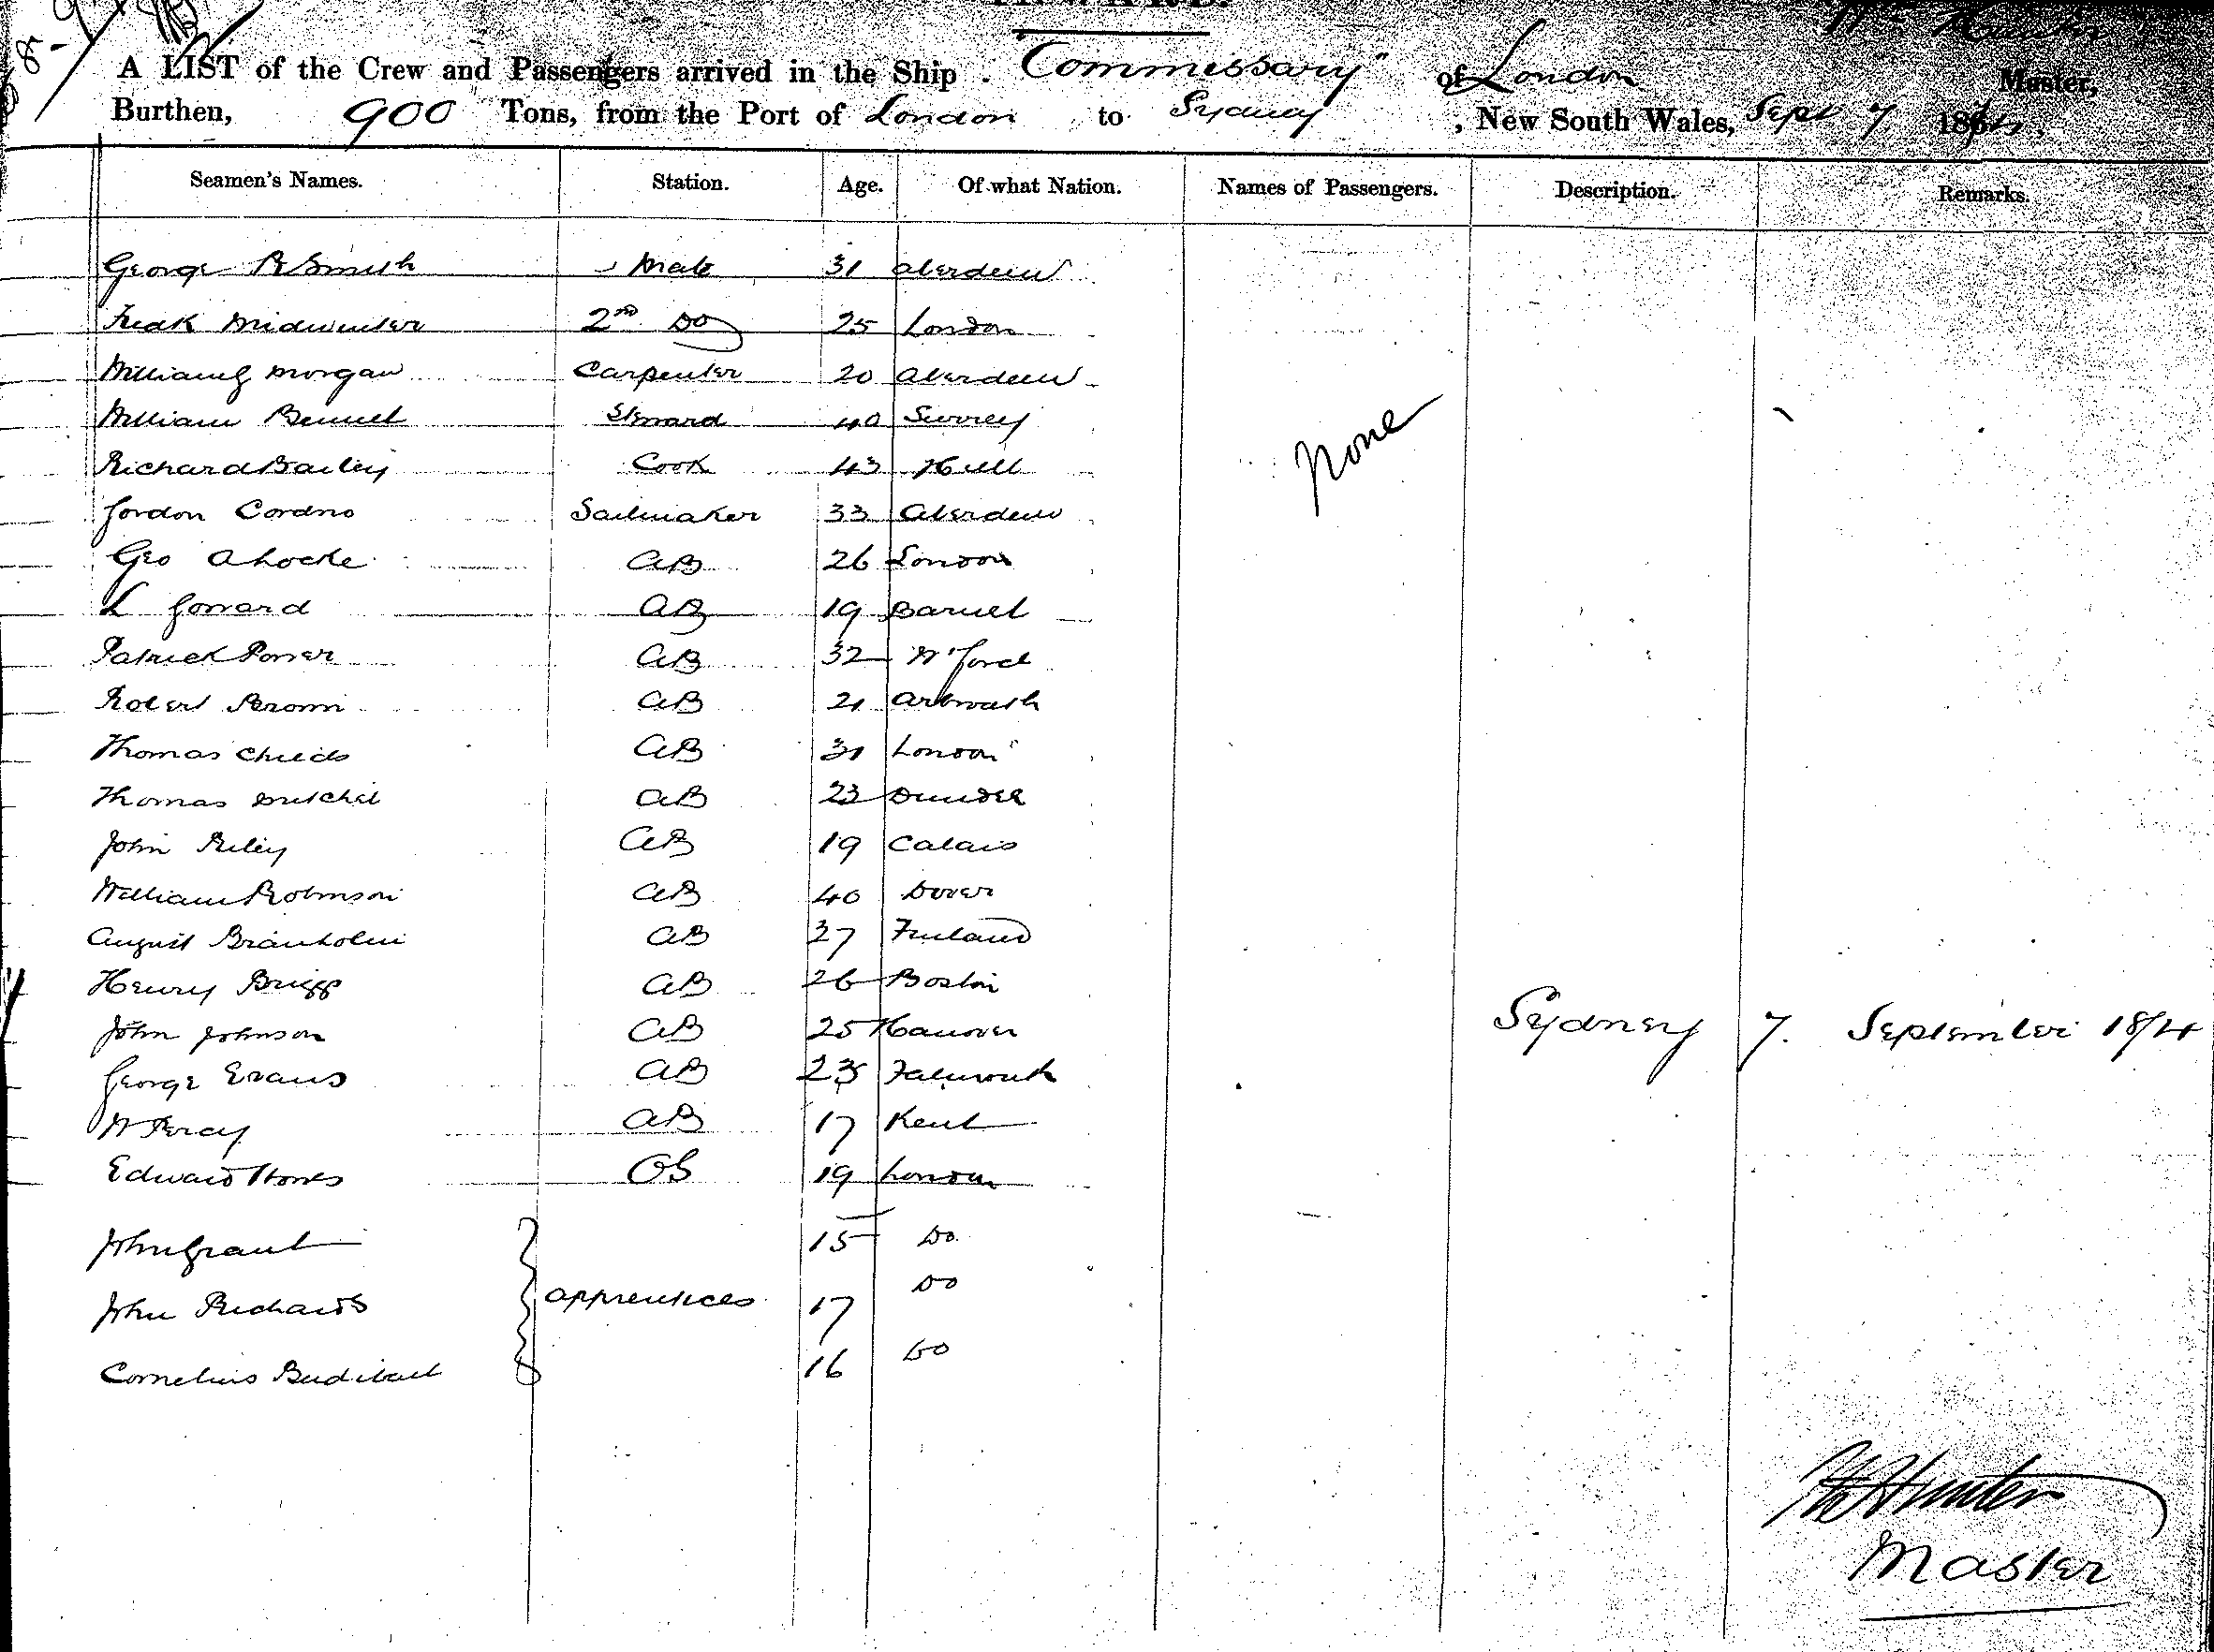 A LIST of the Crew and Passengers arrived in the Ship "Commissary" of London Wm Hunter Master,
Burthen, 900 Tons, from the Port of London to Sydney, New South Wales, Sept 7 1874.
Seamen's Names. Station. Age. Of what Nation. Names of Passengers. Description. Remarks.
George R Smith Mate 31 Aberdeen
Fredk Midwinter 2nd Do 25 London
William G Morgan Carpenter 20 Aberdeen
William Bennet Steward 40 Surrey
None
Richard Bailey Cook 43 Hull
Gordon Cordno Sailmaker 33 Aberdeen
Geo A Locke AB 26 London
L Goward AB 19 Barnet
Patrick Power AB 32 W'ford
Robert Brown AB 21 Arbroath
Thomas Childs AB 31 London
Thomas Mitchel AB 23 Dundee
John Riley AB 19 Calais
William Robinson AB 40 Dover
August Branholm AB 27 Finland
Henry Briggs AB 26 Boston
John Johnson AB 25 Hanover Sydney 7. September 1874
George Evans AB 23 Falmouth
W Percy AB 17 Kent
Edward OS 19 London
John Grant 15 Do
John Richards apprentices 17 Do
Cornelius 16 Do
Wm Hunter
Master